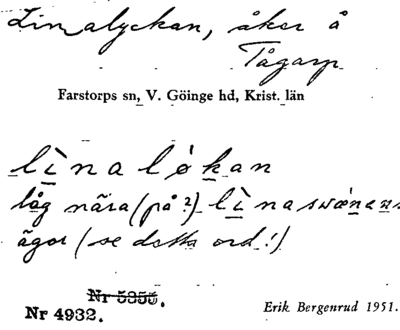 Linalyckan, åker å
Tågarp
Farstorps sn, V. Göinge hd, Krist. län
lìnaløkan
låg nära (på?) lìnaswænans
ägor (se detta ord!)
Nr 5355.
Nr 4932.
Erik Bergenrud 1951.